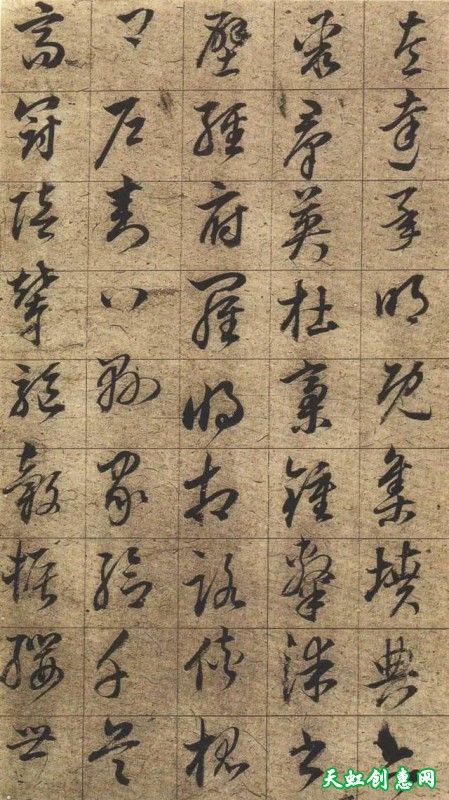 左達承明既集墳典亦
聚群英杜稾鍾隸漆書
壁經府羅將相路俠槐
卿户封八縣家給千兵
高冠陪輦驅轂振纓世
天虹创惠网